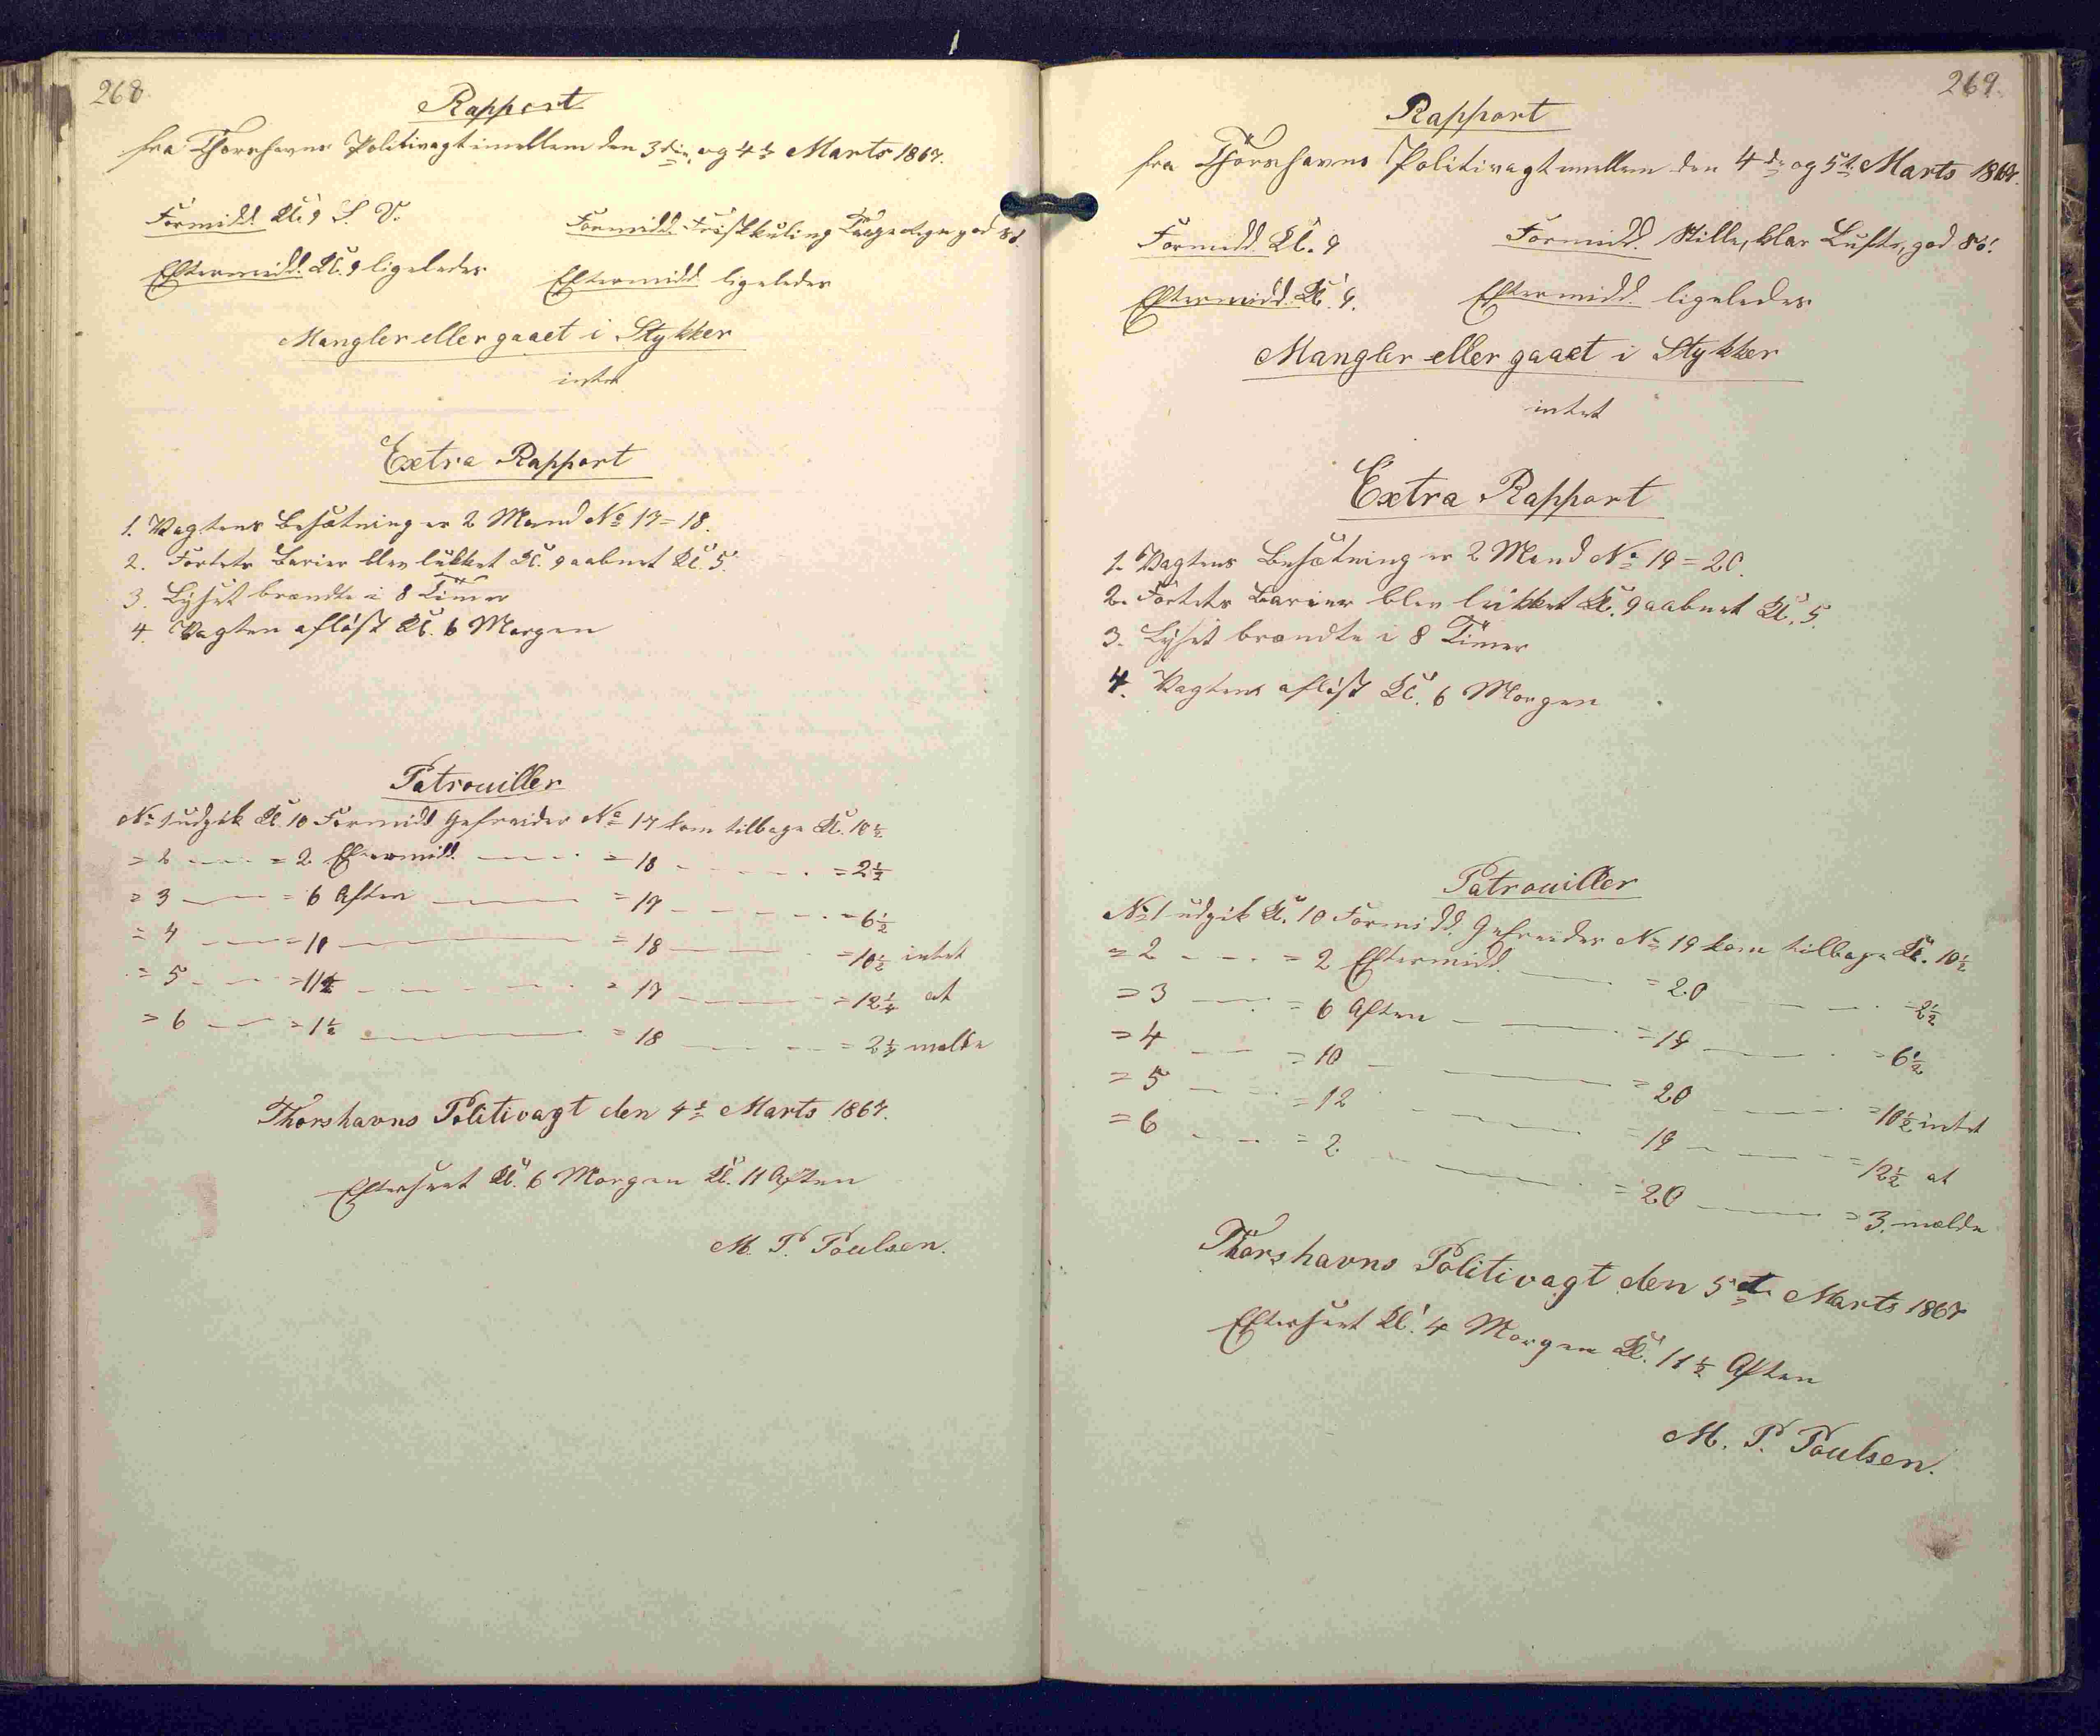 268.
Rapport
fra Thorshavns Politivagt imellem den 3die og 4de Marts 1867.
Formidd. Kl. 9 S. V.
Formidd. Frisk kuling god Sø.
Eftermidd. Kl. 9 ligeledes
Eftermidd. ligeledes
Mangler eller gaaet i Stykker
intet
Extra Rapport
1. Vagtens Besætning er 2 Mand No 17 = 18.
2. Fortets Barier blev lukket Kl. 9 aabnet Kl. 5.
3. Lyset brændte i 8 Timer
4. Vagten afløst Kl. 6 Morgen
Patrouiller
No 1 udgik Kl. 10 Formidd Gefreider No 17 kom tilbage Kl. 10½
= 2 — = 2 Eftermidd. — = 18 — = 2½
= 3 — = 6 Aften — = 17 — = 6½
= 4 — = 10 — = 18 — = 10½ intet
= 5 — = 11½ — = 17 — = 12¼ at
= 6 — = 1½ — = 18 — = 2¼ melde
Thorshavns Politivagt den 4de Marts 1867.
Efterseet Kl. 6 Morgen Kl. 11 Aften
M. P. Poulsen.
269.
Rapport
fra Thorshavns Politivagt imellem den 4de og 5te Marts 1867.
Formidd. Kl. 9
Formidd. Stille, klar Luft, god Sø.
Eftermidd. Kl. 9.
Eftermidd. ligeledes
Mangler eller gaaet i Stykker
intet
Extra Rapport
1. Vagtens Besætning er 2 Mand No 19 = 20.
2. Fortets Barier blev lukket Kl. 9 aabnet Kl. 5.
3. Lyset brændte i 8 Timer
4. Vagten afløst Kl. 6 Morgen
Patrouiller
No 1 udgik Kl. 10 Formidd. Gefreider No 19 kom tilbage Kl. 10½
= 2 — = 2 Eftermidd. — = 20 — = 2½
= 3 — = 6 Aften — = 19 — = 6½
= 4 — = 10 — = 20 — = 10½ intet
= 5 — = 12 — = 19 — = 12½ at
= 6 — = 2 — = 20 — = 3. melde
Thorshavns Politivagt den 5te Marts 1867
Efterseet Kl. 4 Morgen Kl. 11½ Aften
M. P. Poulsen.